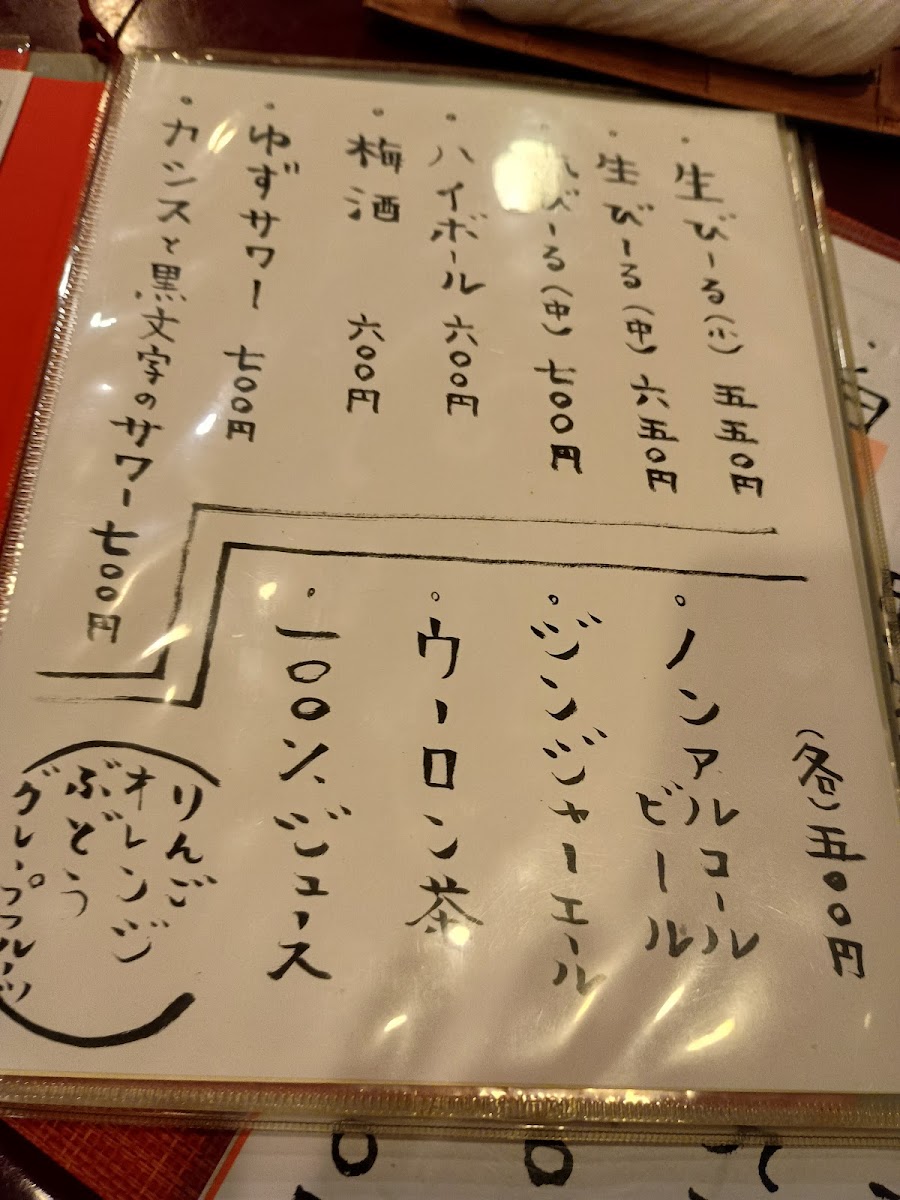 ・生びーる(小) 五五〇円
・生びーる(中) 六五〇円
びーる(中) 七〇〇円
・ハイボール 六〇〇円
・梅酒 六〇〇円
・ゆずサワー 七〇〇円
・カシスと黒文字のサワー 七〇〇円
(各)五〇〇円
・ノンアルコール
ビール
・ジンジャーエール
・ウーロン茶
・一〇〇%ジュース
りんご
オレンジ
ぶどう
グレープフルーツ